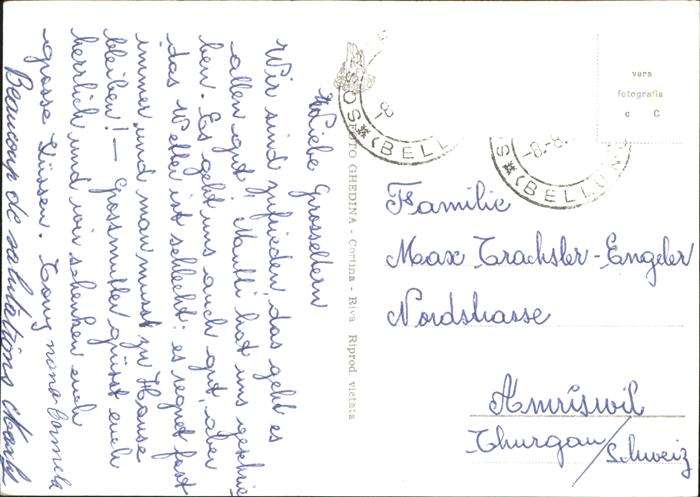 Liebe Grosseltern
Wir sind zufrieden, das geht es
allen gut! Mutti hat uns geschrie
ben. Es geht uns auch gut, aber
das Wetter ist schlecht: es regnet fast
immer und man musst zu Hause
bleiben! — Grossmutter grüsst euch
herrlich und wir schenken euch
grosse Küssen. Tony nona
Beaucoup de salutations
FOTO GHEDINA - Cortina - Riva Riprod. vietata
(BELLUN
-8-8-
(BELLUN
vera
fotografia
Familie
Max Trachsler-Engeler
Nordstrasse
Amriswil
Thurgau/Schweiz